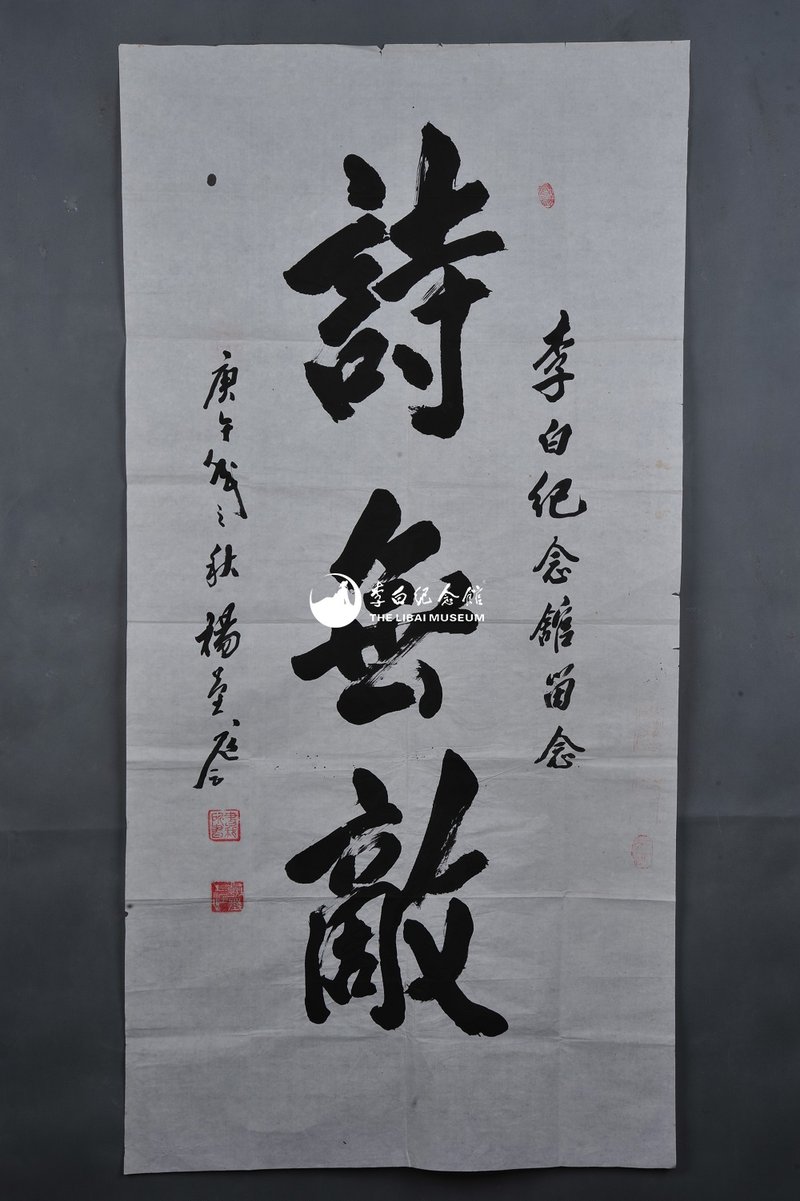 李白纪念館留念
詩無敵
庚午
之秋楊
李白纪念館
THE LIBAI MUSEUM